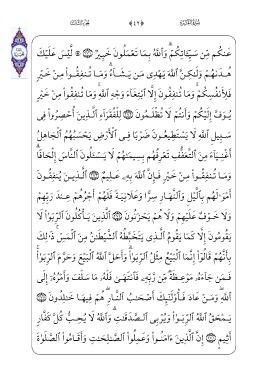 سورة البقرة ﴿٤٦﴾ الجزء الثالث
عَنكُم مِّن سَيِّـَٔاتِكُمْ ۗ وَٱللَّهُ بِمَا تَعْمَلُونَ خَبِيرٌ ۞ لَّيْسَ عَلَيْكَ
هُدَىٰهُمْ وَلَٰكِنَّ ٱللَّهَ يَهْدِى مَن يَشَآءُ ۗ وَمَا تُنفِقُوا۟ مِنْ خَيْرٍ
فَلِأَنفُسِكُمْ ۚ وَمَا تُنفِقُونَ إِلَّا ٱبْتِغَآءَ وَجْهِ ٱللَّهِ ۚ وَمَا تُنفِقُوا۟ مِنْ خَيْرٍ
يُوَفَّ إِلَيْكُمْ وَأَنتُمْ لَا تُظْلَمُونَ لِلْفُقَرَآءِ ٱلَّذِينَ أُحْصِرُوا۟ فِى
سَبِيلِ ٱللَّهِ لَا يَسْتَطِيعُونَ ضَرْبًا فِى ٱلْأَرْضِ يَحْسَبُهُمُ ٱلْجَاهِلُ
أَغْنِيَآءَ مِنَ ٱلتَّعَفُّفِ تَعْرِفُهُم بِسِيمَٰهُمْ لَا يَسْـَٔلُونَ ٱلنَّاسَ إِلْحَافًا ۗ
وَمَا تُنفِقُوا۟ مِنْ خَيْرٍ فَإِنَّ ٱللَّهَ بِهِۦ عَلِيمٌ ٱلَّذِينَ يُنفِقُونَ
أَمْوَٰلَهُم بِٱلَّيْلِ وَٱلنَّهَارِ سِرًّا وَعَلَانِيَةً فَلَهُمْ أَجْرُهُمْ عِندَ رَبِّهِمْ
وَلَا خَوْفٌ عَلَيْهِمْ وَلَا هُمْ يَحْزَنُونَ ٱلَّذِينَ يَأْكُلُونَ ٱلرِّبَوٰا۟ لَا
يَقُومُونَ إِلَّا كَمَا يَقُومُ ٱلَّذِى يَتَخَبَّطُهُ ٱلشَّيْطَٰنُ مِنَ ٱلْمَسِّ ۚ ذَٰلِكَ
بِأَنَّهُمْ قَالُوٓا۟ إِنَّمَا ٱلْبَيْعُ مِثْلُ ٱلرِّبَوٰا۟ ۗ وَأَحَلَّ ٱللَّهُ ٱلْبَيْعَ وَحَرَّمَ ٱلرِّبَوٰا۟ ۚ
فَمَن جَآءَهُۥ مَوْعِظَةٌ مِّن رَّبِّهِۦ فَٱنتَهَىٰ فَلَهُۥ مَا سَلَفَ وَأَمْرُهُۥٓ إِلَى
ٱللَّهِ ۖ وَمَنْ عَادَ فَأُو۟لَٰٓئِكَ أَصْحَٰبُ ٱلنَّارِ ۖ هُمْ فِيهَا خَٰلِدُونَ
يَمْحَقُ ٱللَّهُ ٱلرِّبَوٰا۟ وَيُرْبِى ٱلصَّدَقَٰتِ ۗ وَٱللَّهُ لَا يُحِبُّ كُلَّ كَفَّارٍ
أَثِيمٍ إِنَّ ٱلَّذِينَ ءَامَنُوا۟ وَعَمِلُوا۟ ٱلصَّٰلِحَٰتِ وَأَقَامُوا۟ ٱلصَّلَوٰةَ